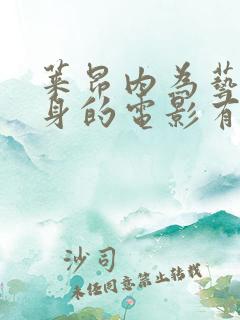 莱昂内为艺
身的电影有
沙司
未经同意禁止转载